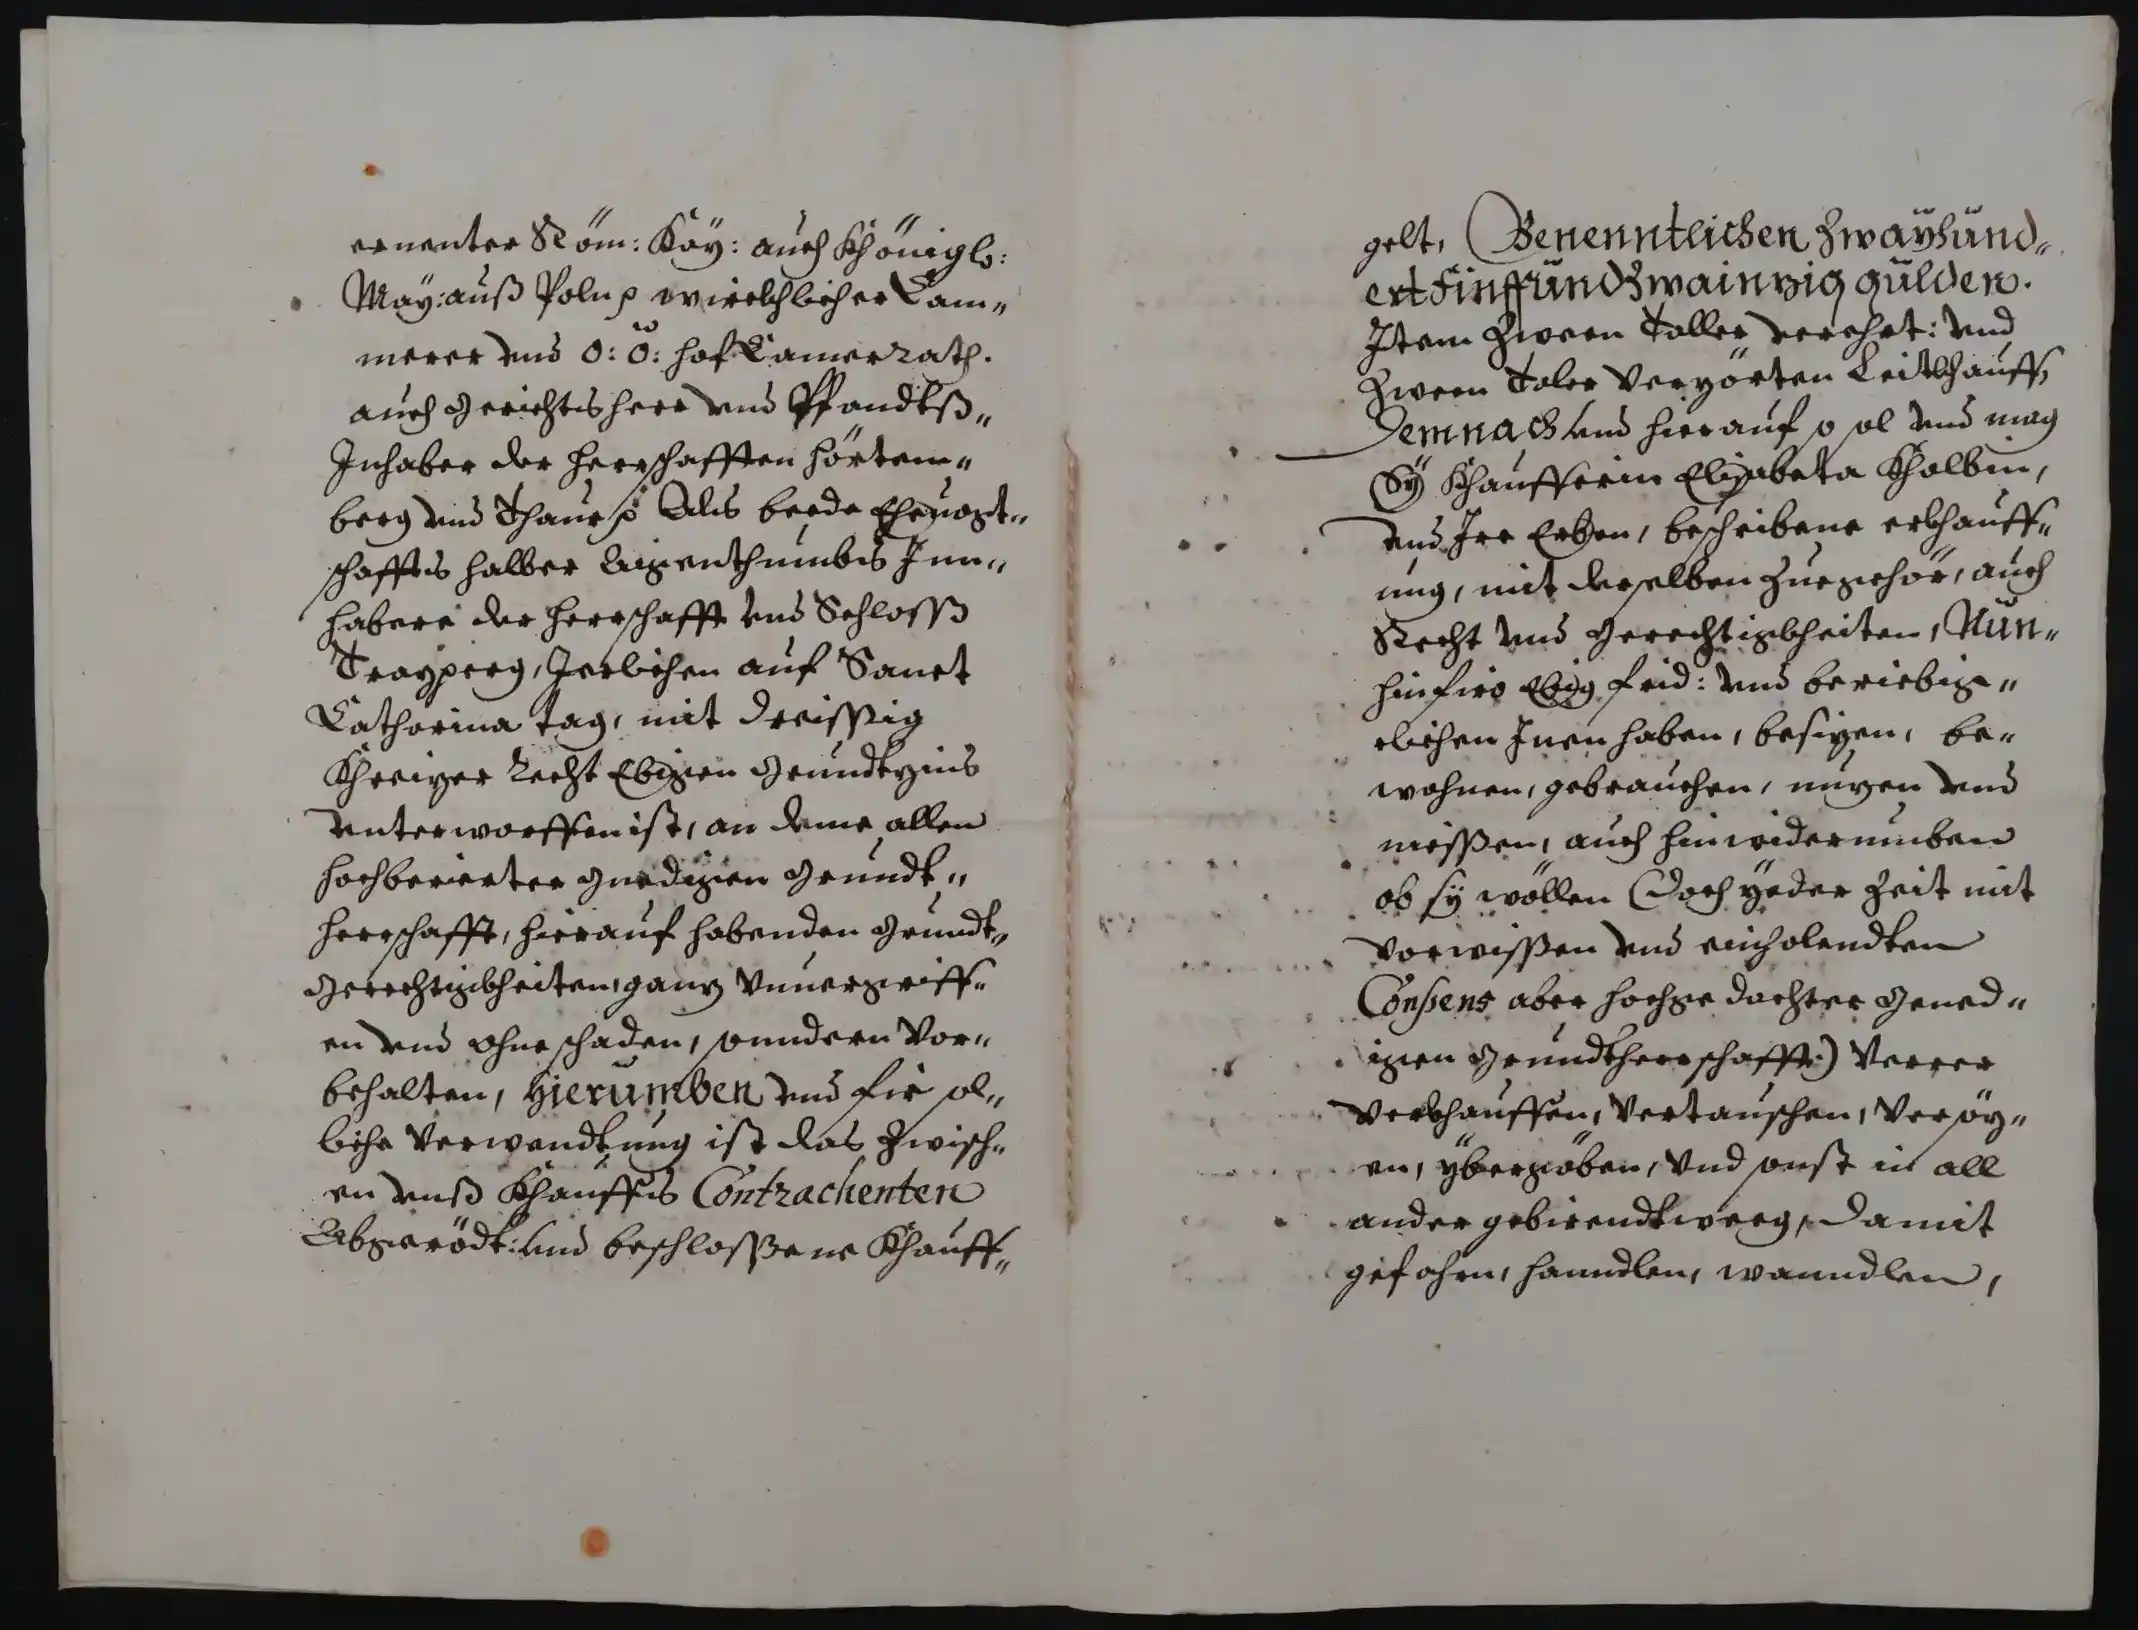 ernenter Röm: Kay: auch Khöniglr:
May: auß Poln p wirckhlicher Cam„
merer vnd O: Ö: hof Camer rath.
auch Gerichtsherr vnd Pfandtß„
Inhaber der Herrschafften Hörtem„
berg vnd Thaur p Als beede Ehevogt„
schaffts halber Aigenthumbs Inn„
habere der Herrschafft vnd Schlosß
Trayperg, Jerlichen auf Sanct
Catharina tag, mit dreissig
Khreizer Recht Ebigen Grundtzins
vnterworffen ist, an deme allen
hochberierter gnedigen Grundt„
herrschafft, hierauf habenden Grundt„
Gerechtigkheiten, ganz Vnuergriff„
en vnd ohne schaden, sonndern Vor„
behalten, Hierumben vnd fir sol„
liche Verwandtung ist das zwisch„
en vnß Khauffs Contrachenten
Abgerödt: vnd beschlossene Khauff„
gelt, Benenntlichen Zwayhund„
ert Finffundzwainzig gulden.
Item Zween Taller verehrt: vnd
Zween Taler verzörten Leitkhauff,
Demnach vnd hierauf so sol vnd mag
Sy Khaufferin Elisabeta Kholbin,
vnd Ire Erben, beschribene erkhauff„
ung, mit derselben Zuegehör, auch
Recht vnd Gerechtigkheiten, Nun„
hinfiro Ebig frid: vnd beriebig„
clichen Innen haben, besizen, be„
wohnen, gebrauchen, nuzen vnd
niessen, auch hinwiderumben
ob sy wöllen (Doch yeder Zeit mit
vorwissen vnd einholendten
Consens aber hochgedachter Gened„
igen Grundtherrschafft) Verrer
verkhauffen, vertauschen, versöz„
en, ybergöben, vnd sonst in all
ander gebirendt weeg, damit
gefahrn, hanndlen, wanndlen,